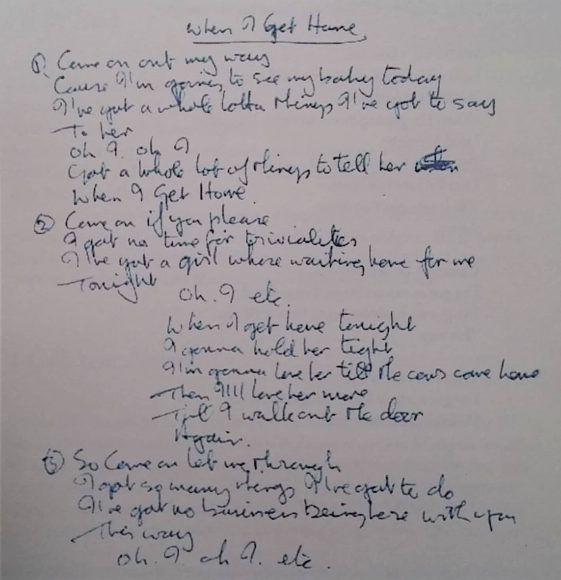 When I Get Home
① Come on out my way
Cause I'm going to see my baby today
I've got a whole lotta things I've got to say
To her
Oh I. oh I
Got a whole lot of things to tell her
When I Get Home
② Come on if you please
I got no time for trivialities
I've got a girl whose waiting home for me
Tonight
Oh. I etc.
When I get home tonight
I gonna hold her tight
I'm gonna love her till the cows come home
Then I'll love her more
Till I walk out the door
Again.
③ So Come on let me through
I got so many things I've got to do
I've got no business being here with you
This way
Oh. I. oh I. etc.